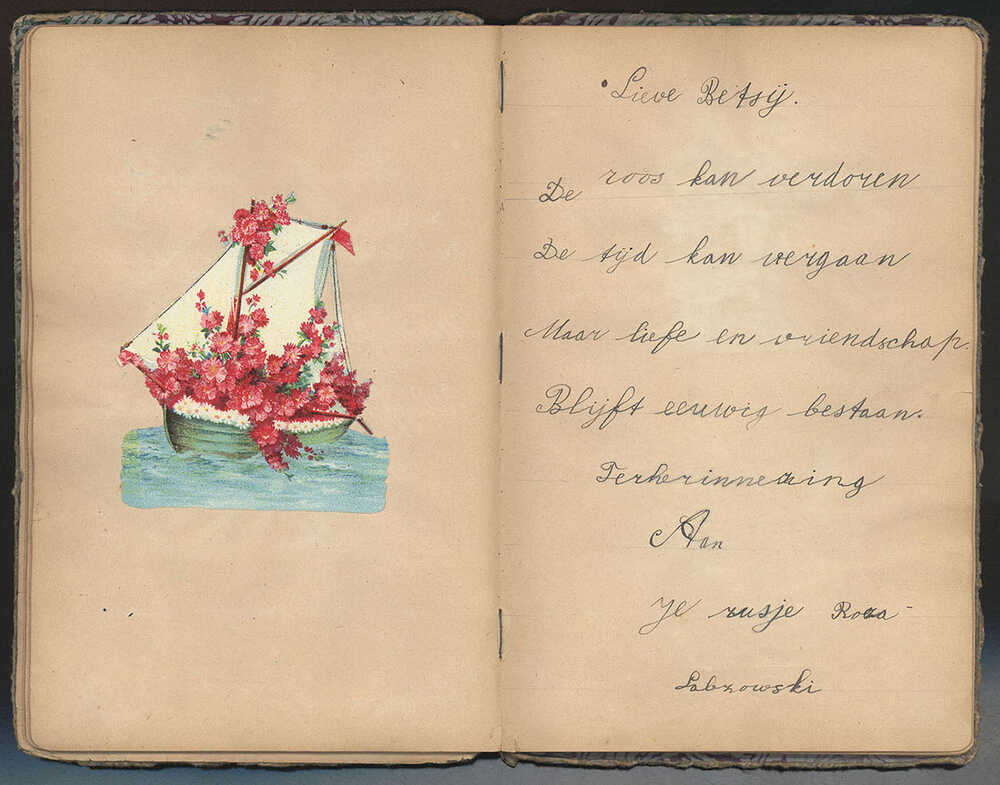 Lieve Betsij.
De roos kan verdoren
De tijd kan vergaan
Maar liefe en vriendschap.
Blijft eeuwig bestaan.
Terherinnering
Aan
Je zusje Roza
Lobzowski